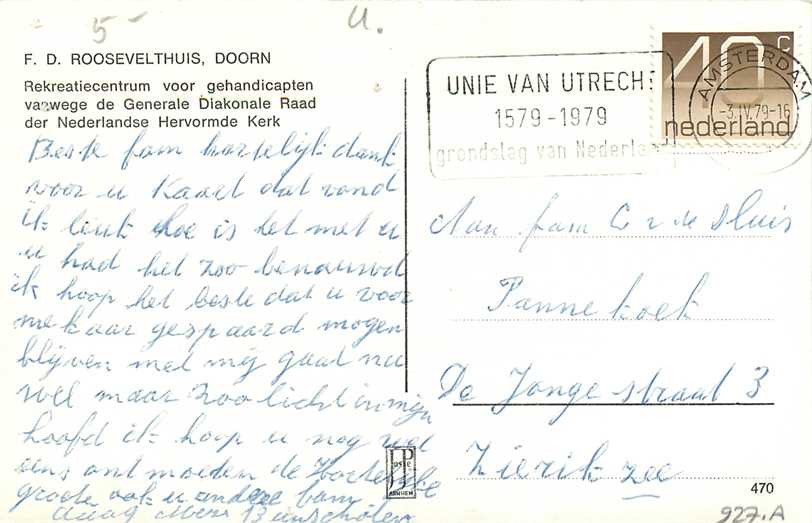 5-
U.
F. D. ROOSEVELTHUIS, DOORN
Rekreatiecentrum voor gehandicapten
vanwege de Generale Diakonale Raad
der Nederlandse Hervormde Kerk
Beste fam hartelijk dank
voor u Kaart dat vond
ik leuk hoe is het met u
u had het zoo benauwd
ik hoop het beste dat u voor
mekaar gespaard mogen
blijven met mij gaat nu
wel maar zoo licht in mijn
hoofd ik hoop u nog wel
eens ontmoeten de
groete ook u andere
UNIE VAN UTRECHT
1579-1979
grondslag van Nederla
40c
nederland
AMSTERDAM
-3.IV.79-16
Aan fam C v de Sluis
Pannekoek
De Jonge straat 3
Zierikzee
JP
ARNHEM
470
927.A